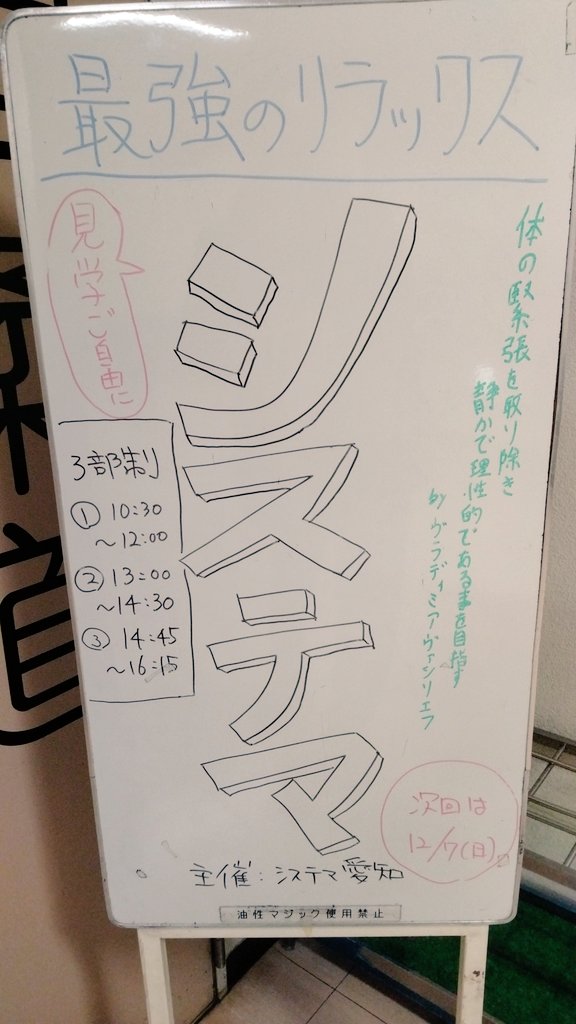 最強のリラックス
体の緊張を取り除き
静かで理性的である事を目指す
by ヴラディミア・ヴァシリエフ
システマ
見学ご自由に
3部制
① 10:30
～12:00
② 13:00
～14:30
③ 14:45
～16:15
次回は
12/7(日)。
主催:システマ愛知
油性マジック使用禁止